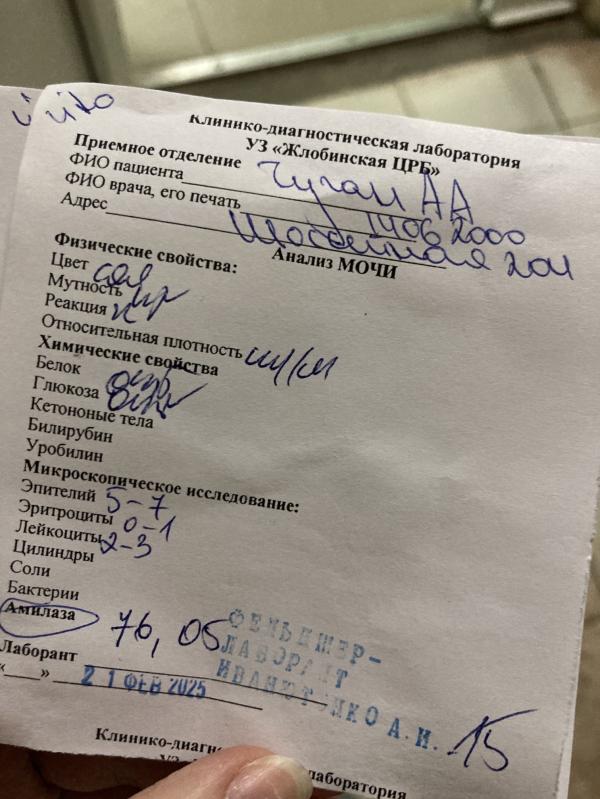 cito
Клинико-диагностическая лаборатория
УЗ «Жлобинская ЦРБ»
Приемное отделение
ФИО пациента Чуган АА
ФИО врача, его печать 14062000
Адрес Шоссейная
Анализ МОЧИ
Физические свойства:
Цвет сол
Мутность пр
Реакция к
Относительная плотность м/м
Химические свойства
Белок отр
Глюкоза отр
Кетононые тела
Билирубин
Уробилин
Микроскопическое исследование:
Эпителий 5-7
Эритроциты 0-1
Лейкоциты 2-3
Цилиндры
Соли
Бактерии
Амилаза 76,05
ФЕЛЬДШЕР-
ЛАБОРАНТ
Лаборант
ИВАНЮШКО А.И. 15
« » 21 ФЕВ 2025
Клинико-диагн лаборатория